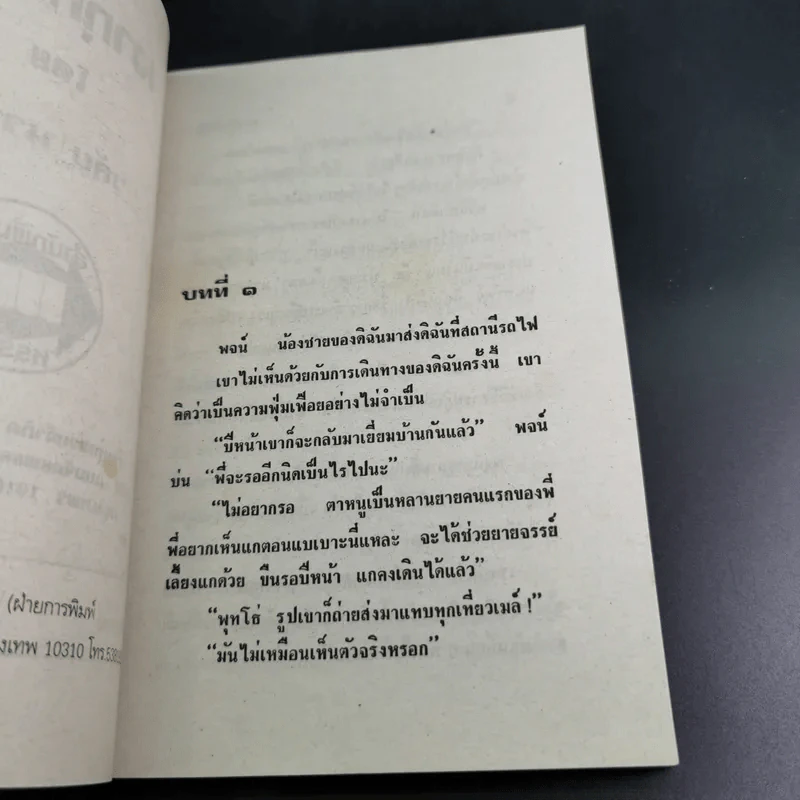 โดย
(ฝ่ายการพิมพ์
งเทพ 10310 โทร.538
บทที่ ๑
พจน์ น้องชายของดิฉันมาส่งดิฉันที่สถานีรถไฟ
เขาไม่เห็นด้วยกับการเดินทางของดิฉันครั้งนี้ เขา
คิดว่าเป็นความฟุ่มเฟือยอย่างไม่จำเป็น
“ปีหน้าเขาก็จะกลับมาเยี่ยมบ้านกันแล้ว” พจน์
บ่น “พี่จะรออีกนิดเป็นไรไปนะ”
“ไม่อยากรอ ตาหนูเป็นหลานยายคนแรกของพี่
พี่อยากเห็นแกตอนแบเบาะนี่แหละ จะได้ช่วยยายจรรย์
เลี้ยงแกด้วย ขืนรอปีหน้า แกคงเดินได้แล้ว”
“พุทโธ่ รูปเขาก็ถ่ายส่งมาแทบทุกเที่ยวเมล์ !”
“มันไม่เหมือนเห็นตัวจริงหรอก”